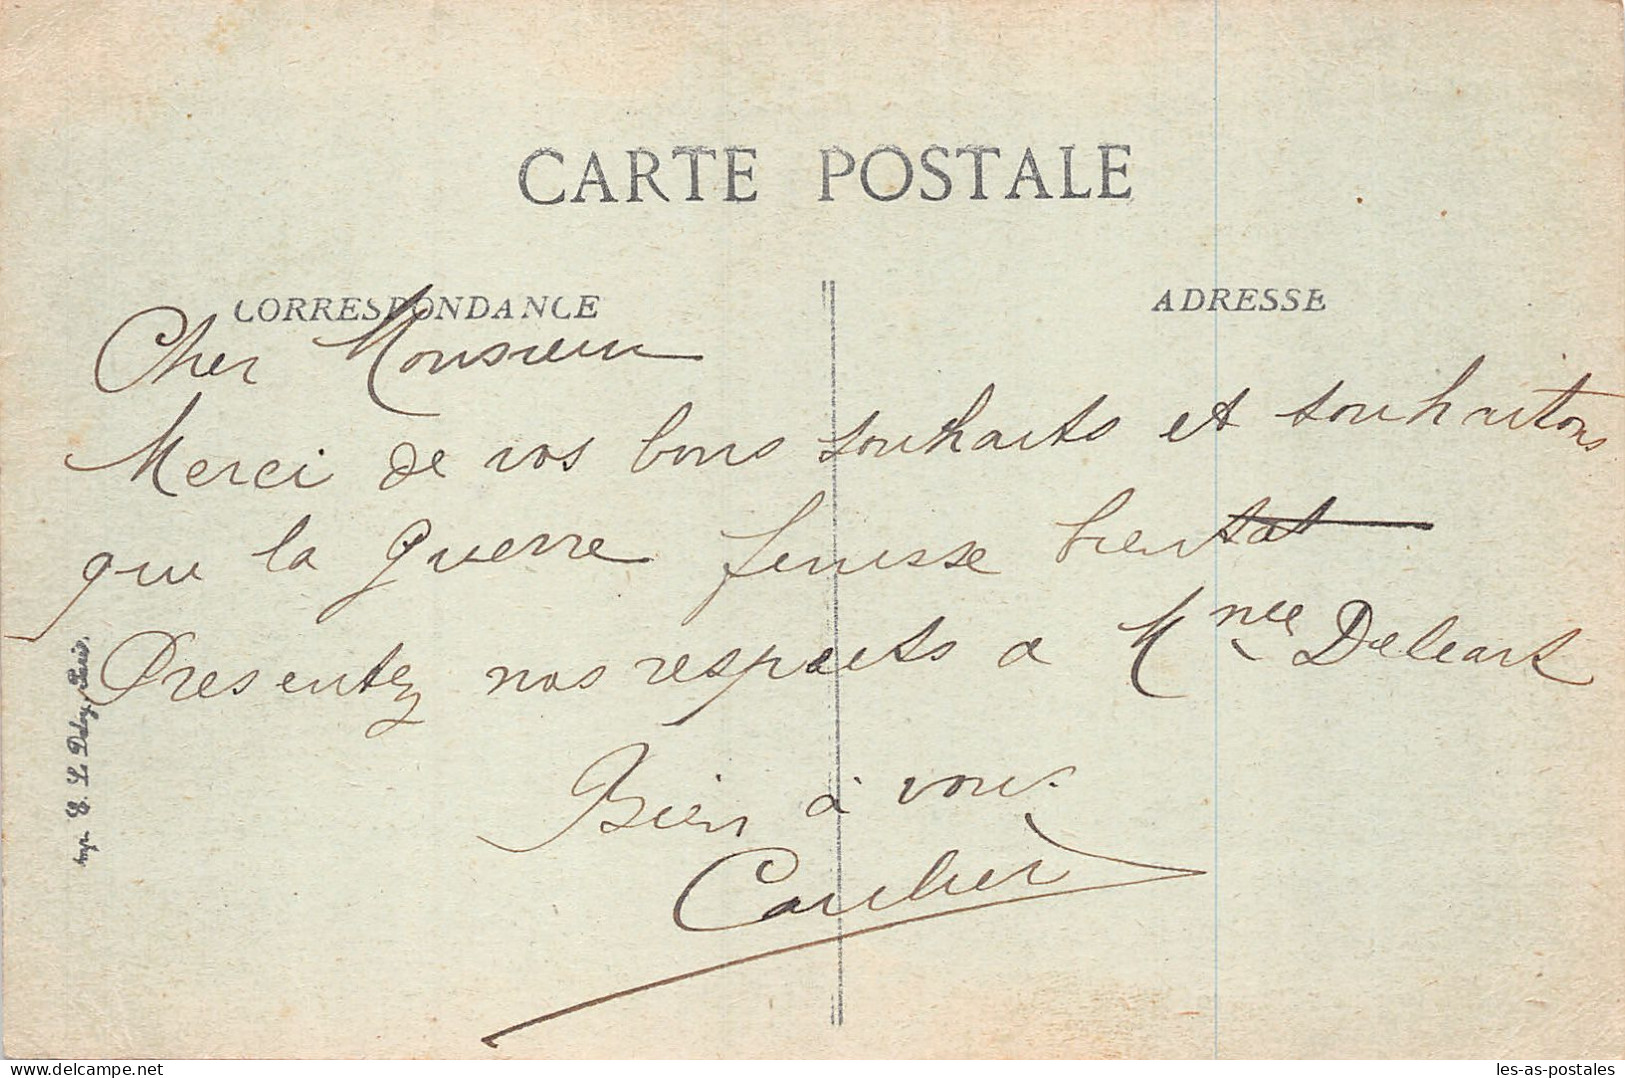 CARTE POSTALE
CORRESPONDANCE
ADRESSE
Cher Monsieur
Merci de vos bons souhaits et souhaitons
que la guerre finisse bientot
Presentez nos respects a Mme Deleart
Bien à vous
Caulier
Imp. E. L. Deley, Paris.
www.delcampe.net
les-as-postales